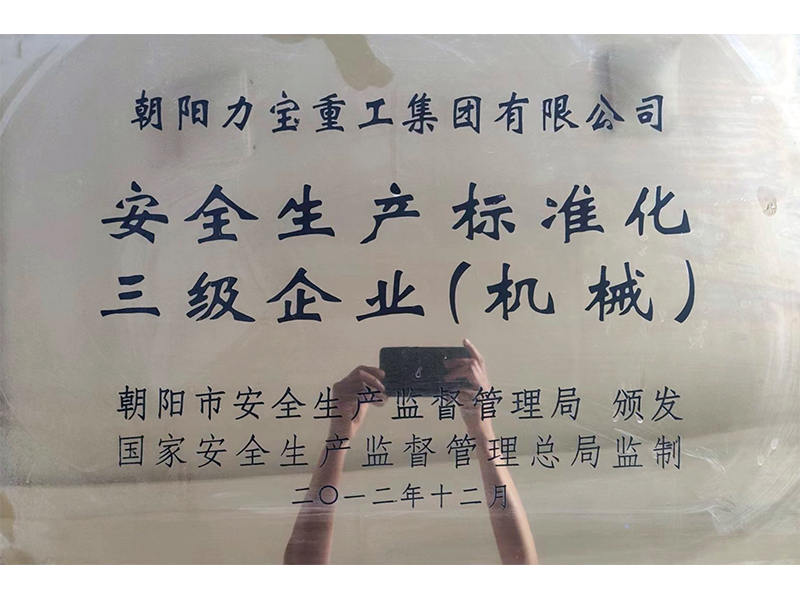 朝阳力宝重工集团有限公司
安全生产标准化
三级企业(机械)
朝阳市安全生产监督管理局 颁发
国家安全生产监督管理总局监制
二〇一二年十二月